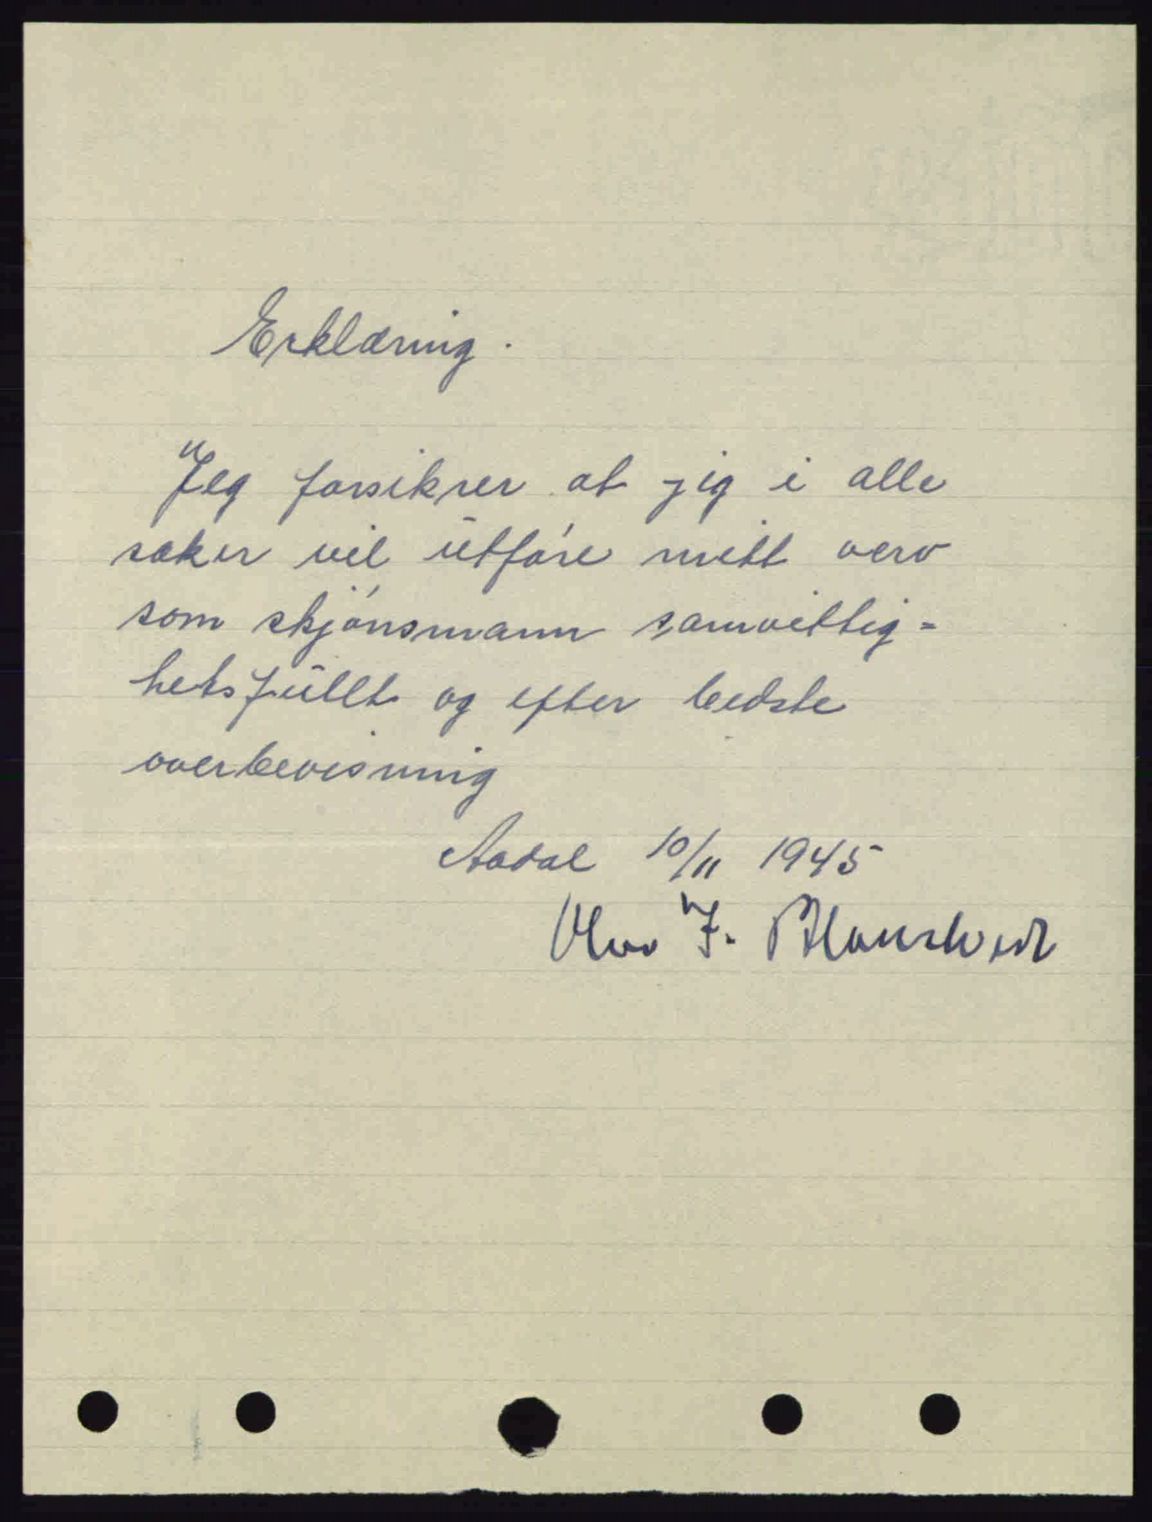 Erklæring.
Jeg forsikrer at jeg i alle
saker vil utføre mitt verv
som skjønsmann samvittig=
hetsfullt og efter bedste
overbevisning
Aadal 10/11 1945